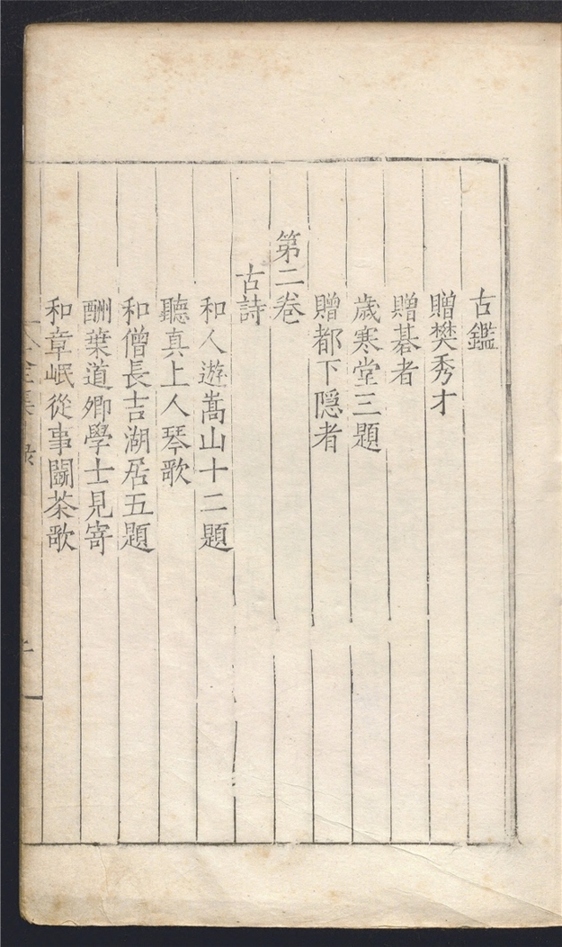 古鑑
贈樊秀才
贈碁者
歲寒堂三題
贈都下隱者
第二卷
古詩
和人遊嵩山十二題
聽真上人琴歌
和僧長吉湖居五題
酬葉道卿學士見寄
和章岷從事鬭茶歌